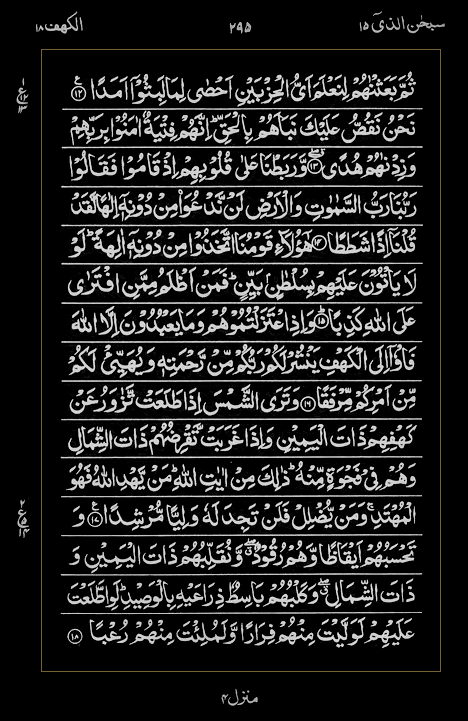 سبحٰن الذیٓ ۱۵
۲۹۵
الکهف ۱۸
ثُمَّ بَعَثْنٰهُمْ لِنَعْلَمَ اَیُّ الْحِزْبَیْنِ اَحْصٰی لِمَا لَبِثُوْۤا اَمَدًا ﴿۱۲﴾ ع
نَحْنُ نَقُصُّ عَلَیْكَ نَبَاَهُمْ بِالْحَقِّ ؕ اِنَّهُمْ فِتْیَةٌ اٰمَنُوْا بِرَبِّهِمْ
وَ زِدْنٰهُمْ هُدًی ﴿۱۳﴾ وَّ رَبَطْنَا عَلٰی قُلُوْبِهِمْ اِذْ قَامُوْا فَقَالُوْا
رَبُّنَا رَبُّ السَّمٰوٰتِ وَ الْاَرْضِ لَنْ نَّدْعُوَاۡ مِنْ دُوْنِهٖۤ اِلٰهًا لَّقَدْ
قُلْنَاۤ اِذًا شَطَطًا ﴿۱۴﴾ هٰۤؤُلَآءِ قَوْمُنَا اتَّخَذُوْا مِنْ دُوْنِهٖۤ اٰلِهَةً ؕ لَوْ
لَا یَاْتُوْنَ عَلَیْهِمْ بِسُلْطٰنٍۭ بَیِّنٍ ؕ فَمَنْ اَظْلَمُ مِمَّنِ افْتَرٰی
عَلَی اللّٰهِ كَذِبًا ﴿۱۵﴾ وَ اِذِ اعْتَزَلْتُمُوْهُمْ وَ مَا یَعْبُدُوْنَ اِلَّا اللّٰهَ
فَاْوٗۤا اِلَی الْكَهْفِ یَنْشُرْ لَكُمْ رَبُّكُمْ مِّنْ رَّحْمَتِهٖ وَ یُهَیِّئْ لَكُمْ
مِّنْ اَمْرِكُمْ مِّرْفَقًا ﴿۱۶﴾ وَ تَرَی الشَّمْسَ اِذَا طَلَعَتْ تَّزٰوَرُ عَنْ
كَهْفِهِمْ ذَاتَ الْیَمِیْنِ وَ اِذَا غَرَبَتْ تَّقْرِضُهُمْ ذَاتَ الشِّمَالِ
وَ هُمْ فِیْ فَجْوَةٍ مِّنْهُ ؕ ذٰلِكَ مِنْ اٰیٰتِ اللّٰهِ ؕ مَنْ یَّهْدِ اللّٰهُ فَهُوَ
الْمُهْتَدِ ۚ وَ مَنْ یُّضْلِلْ فَلَنْ تَجِدَ لَهٗ وَلِیًّا مُّرْشِدًا ﴿۱۷﴾ ع وَ
تَحْسَبُهُمْ اَیْقَاظًا وَّ هُمْ رُقُوْدٌ ۖۗ وَّ نُقَلِّبُهُمْ ذَاتَ الْیَمِیْنِ وَ
ذَاتَ الشِّمَالِ ۖۗ وَ كَلْبُهُمْ بَاسِطٌ ذِرَاعَیْهِ بِالْوَصِیْدِ ؕ لَوِ اطَّلَعْتَ
عَلَیْهِمْ لَوَلَّیْتَ مِنْهُمْ فِرَارًا وَّ لَمُلِئْتَ مِنْهُمْ رُعْبًا ﴿۱۸﴾
منزل ۴